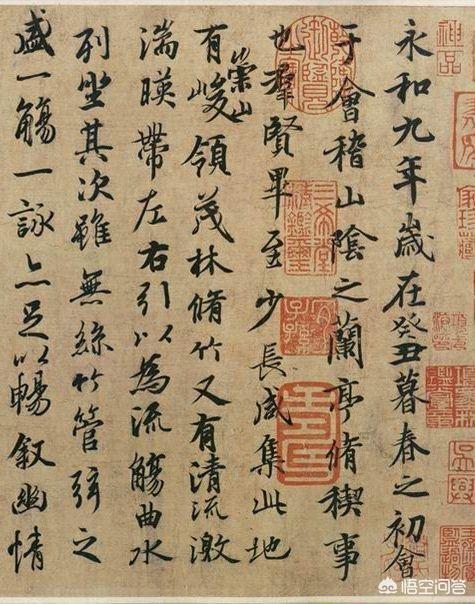 神品
永和九年歲在癸丑暮春之初會
于會稽山陰之蘭亭脩稧事
也羣賢畢至少長咸集此地
有崇山峻領茂林脩竹又有清流激
湍暎帶左右引以為流觴曲水
列坐其次雖無絲竹管弦之
盛一觴一詠亦足以暢敘幽情
悟空问答